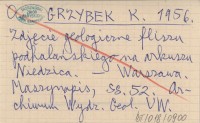 GRZYBEK K. 1956.
Zdjęcie geologiczne fliszu
podhalańskiego na arkuszu
Niedzica. — Warszawa.
Maszynopis, ss. 52. Ar-
chiwum Wydz. Geol. UW.